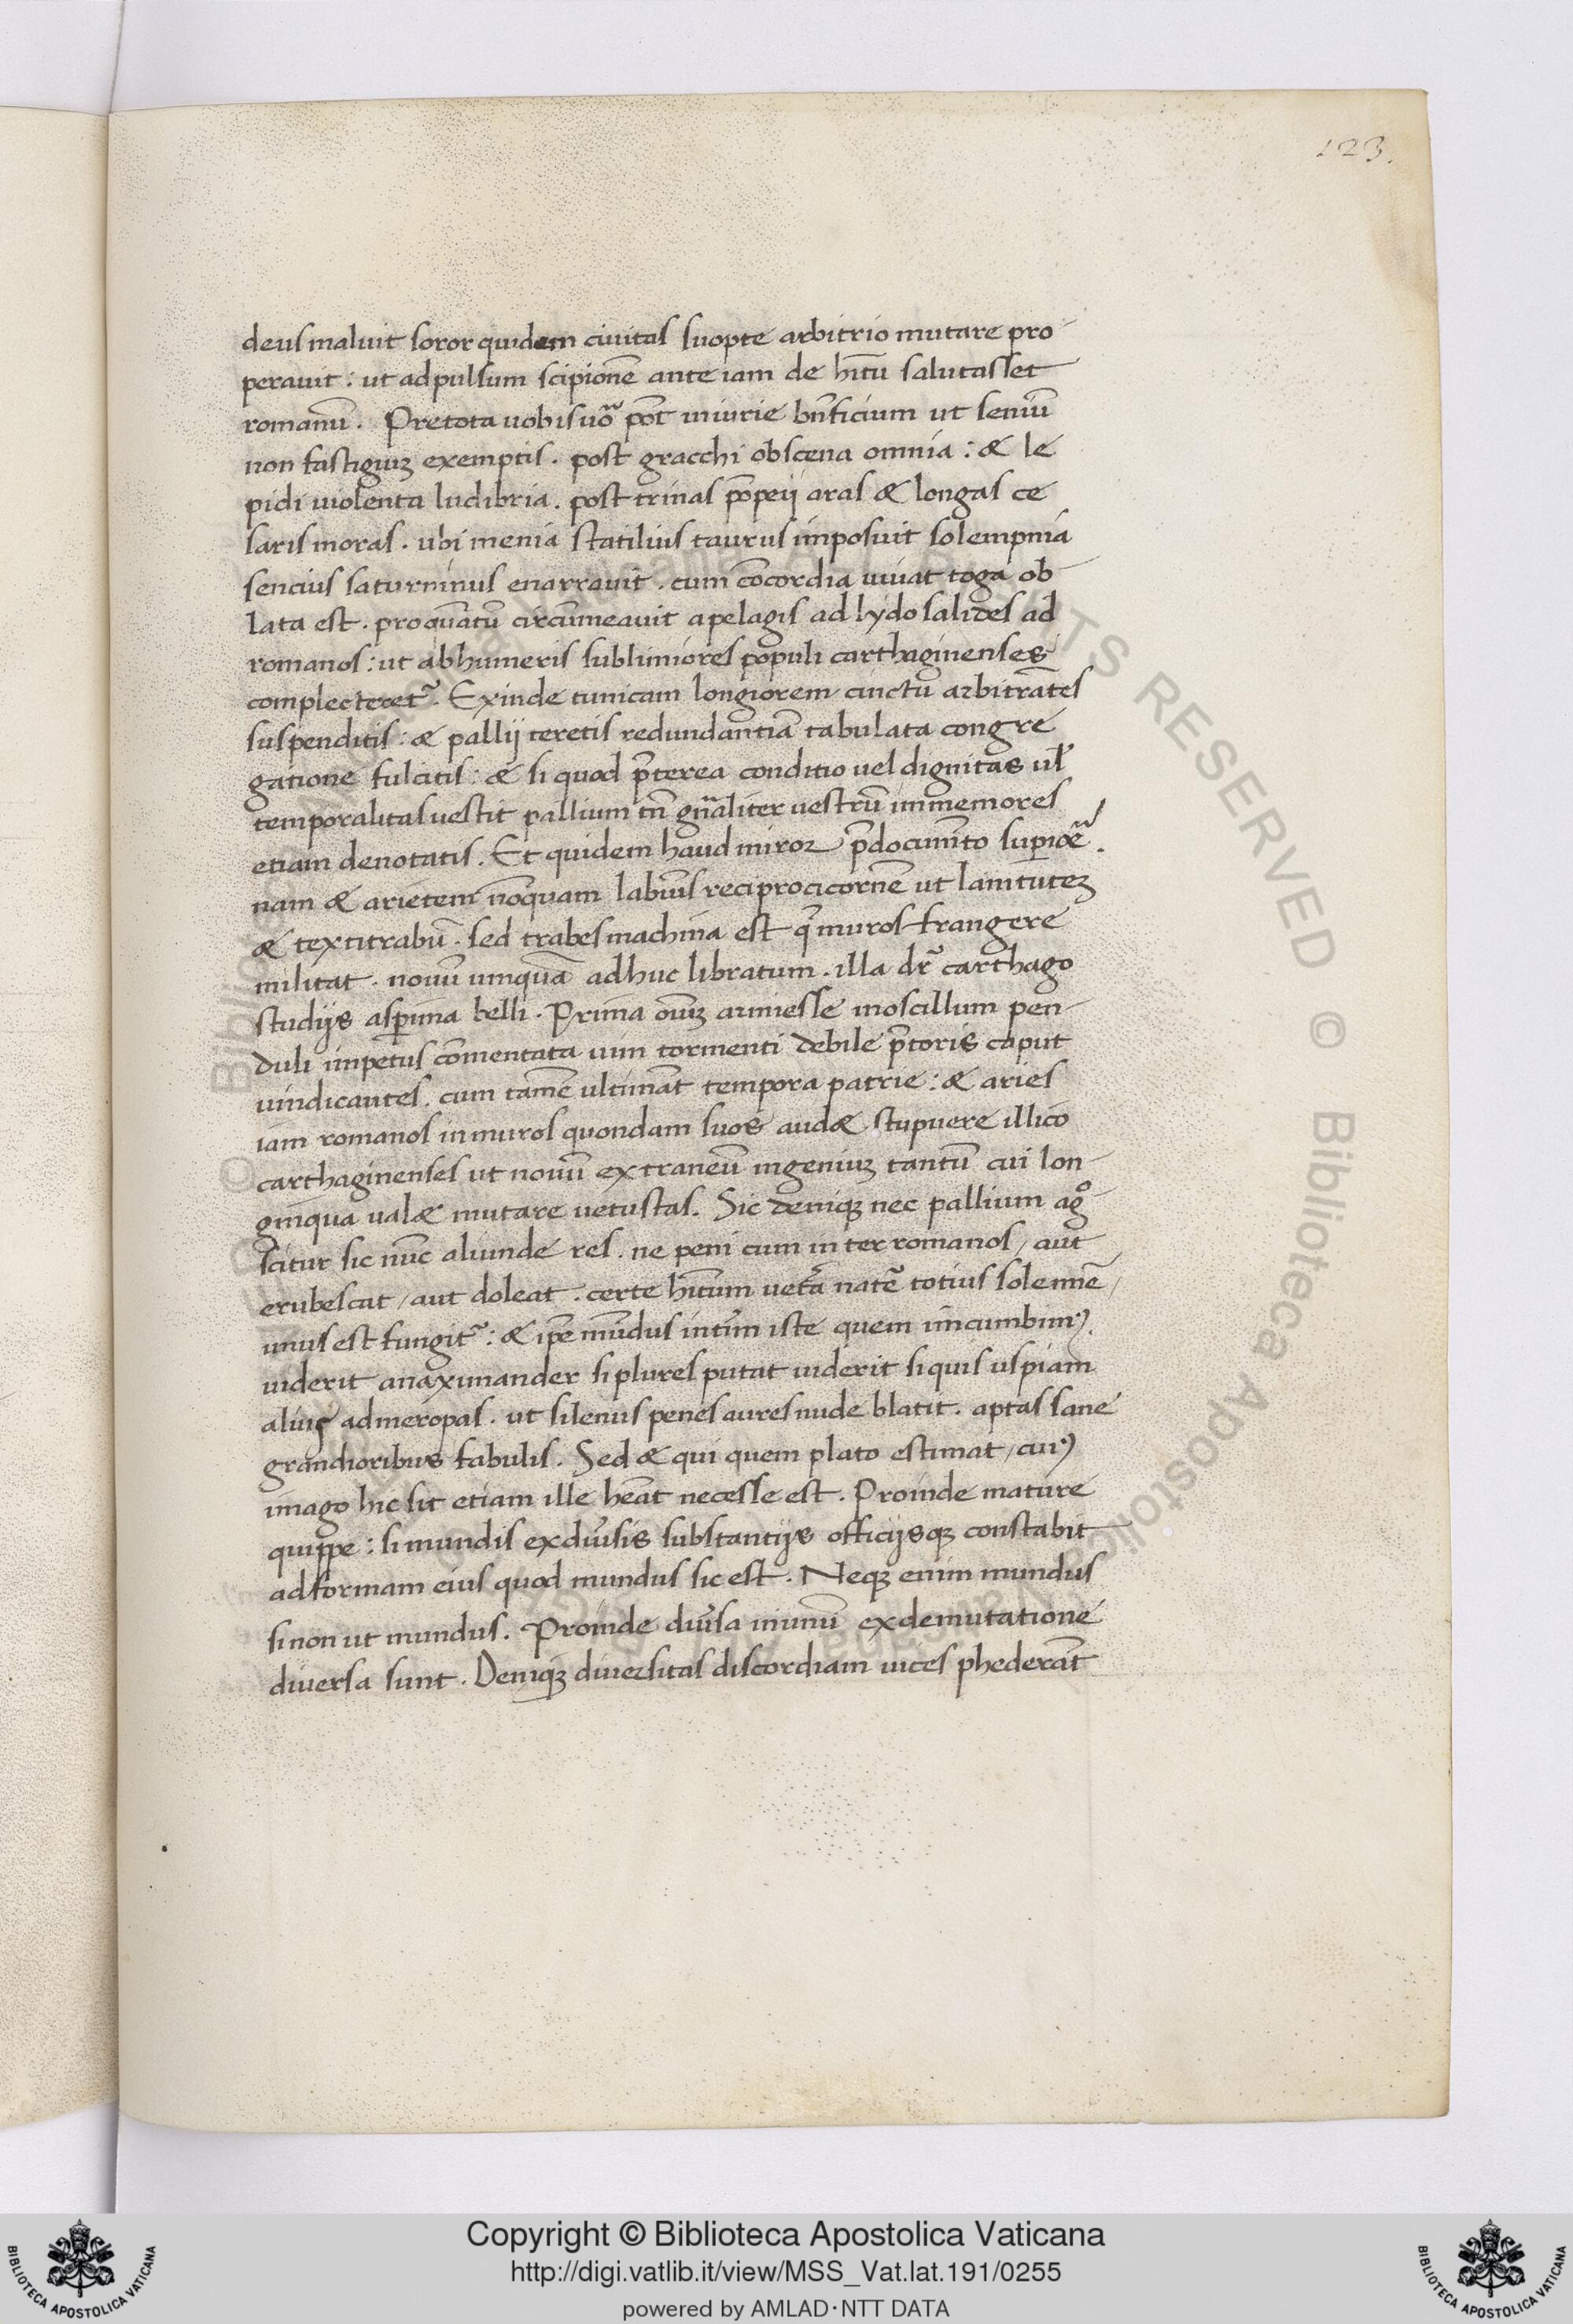 123.
deus maluit soror quidem ciuitas suopte arbitrio mutare pro
perauit : ut adpulsum scipionē ante iam de hītū salutasset
romanū . Pretota uobis uō post iniurie bn̄ficium ut seniū
non fastigiuꝫ exemptis . post gracchi obscena omnia : & le
pidi uiolenta ludibria . post trinas pōpeij aras & longas ce
saris moras . ubi menia statilius taurus imposuit solempnia
sencius saturninus enarrauit . cum cōcordia iuuat toga ob
lata est . pro quātū circūmeauit a pelagis ad lydos alides ad
romanos : ut ab humeris sublimiores populi carthaginenses
complecteret᷑ . Exinde tunicam longiorem cinctu arbitrātes
suspenditis : & pallij teretis redundantiā tabulata congre
gatione fulcitis : & si quod p̄terea conditio uel dignitas ul̄
temporalitas uestit pallium tn̄ gn̄aliter uestrū immemores
etiam denotatis . Et quidem haud miror p̄documīto supiōē .
nam & arietem nōquam labius reciprocicornē ut lanitutēꝫ
& textitrabū . sed trabes machina est q̄ muros frangere
militat . nouū umquā adhuc libratum . illa dr̄ carthago
studijs asp̄ima belli . Prima oīuꝫ armiesse in oscillum pen-
duli impetus cōmentata uim tormenti debile p̄toris caput
uindicantes . cum tamē ultimāt tempora patrie : & aries
iam romanos in muros quondam suos aud& stupuere illico
carthaginenses ut nouū extraneū ingeniuꝫ tantū cui lon-
ginqua ual& mutare uetustas . Sic deniqꝫ nec pallium ago-
scitur sic nūc aliunde res . ne peni cum inter romanos / aut
erubescat / aut doleat . certe hītum uet̄a natē totius solemnē /
unus est fungit᷑ : & ip̄e mūdus int̄im iste quem īncumbimꝰ .
uiderit anaximander si plures putat uiderit siquis uspiam
alius ad meropas . ut silenus penes aures mide blatit . aptas sane
grandioribus fabulis . Sed & qui quem plato estimat / cuiꝰ
imago hic sit etiam ille hēat necesse est . Proinde mature
quippe : si mundis ex diūsis substantijs officijsqꝫ constabit
ad formam eius quod mundus sic est . Neqꝫ enim mundus
si non ut mundus . Proinde diūsa inunū ex demutatione
diuersa sunt . Deniqꝫ diuersitas discordiam uices phederāt
© Biblioteca Apostolica
RESERVED © Biblioteca Apostolica
Copyright © Biblioteca Apostolica Vaticana
http://digi.vatlib.it/view/MSS_Vat.lat.191/0255
powered by AMLAD·NTT DATA
BIBLIOTECA APOSTOLICA VATICANA
BIBLIOTECA APOSTOLICA VATICANA